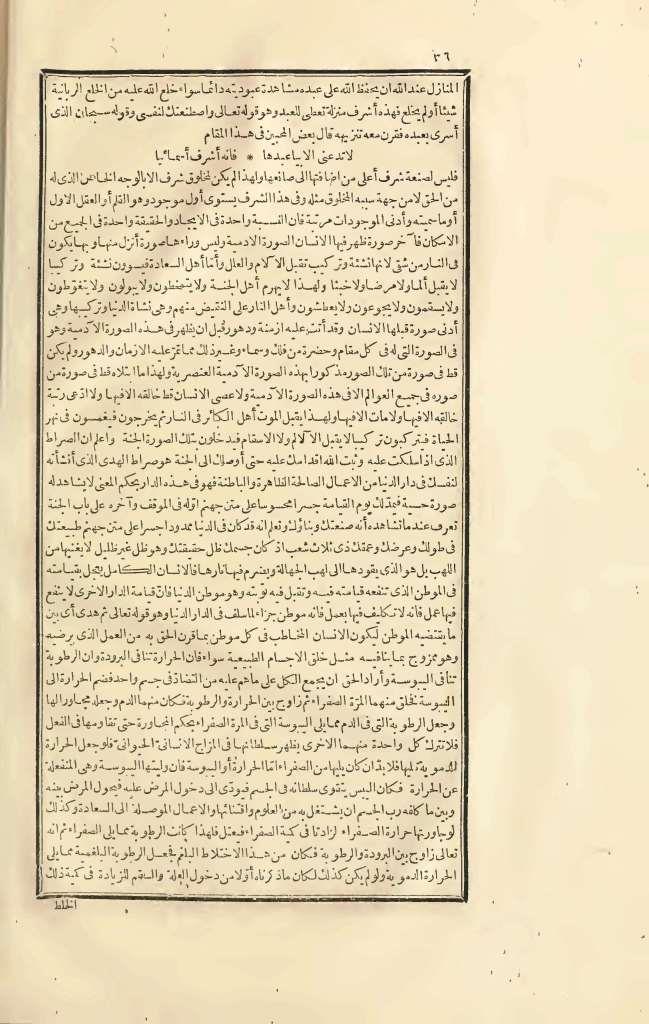 ٣٦
المنازل عند الله ان يحفظ الله على عبده مشاهدة عبوديته دائما سواء خلع الله عليه من الخلع الربانية
شيئا أو لم يخلع فهذه أشرف منزلة تعطى للعبد وهو قوله تعالى واصطنعتك لنفسى وقوله سبحان الذى
أسرى بعبده فقرن معه تنزيهه قال بعض المحبين فى هذا المقام
لا تدعنى الا بيا عبدها * فانه أشرف أسمائيا
فليس لصنعة شرف أعلى من اضافتها الى صانعها ولهذا لم يكن لمخلوق شرف الا بالوجه الخاص الذى له
من الحق لا من جهة سببه المخلوق مثله وفى هذا الشرف يستوى أول موجود وهو القلم أو العقل الاول
أو ما سميته وأدنى الموجودات مرتبة فان النسبة واحدة فى الايجاد والحقيقة واحدة فى الجميع من
الامكان فآخر صورة ظهر فيها الانسان الصورة الادمية وليس وراءها صورة أنزل منها وبها يكون
فى النار من شقى لانها نشئة وتركيب تقبل الآلام والعلل وأما أهل السعادة فينشؤن نشئة وتركيبا
لا يقبل ألما ولا مرضا ولا خبثا ولهذا لا يهرم أهل الجنة ولا يتمخطون ولا يبولون ولا يتغوطون
ولا يسقمون ولا يجوعون ولا يعطشون وأهل النار على النقيض منهم وهى نشأة الدنيا وتركيبها وهى
أدنى صورة قبلها الانسان وقد أتت عليه ازمنة ودهور قبل ان يظهر فى هذه الصورة الآدمية وهو
فى الصورة التى له فى كل مقام وحضرة من فلك وسماء وغير ذلك مما تمر عليه الازمان والدهور ولم يكن
قط فى صورة من تلك الصور مذكورا بهذه الصورة الآدمية العنصرية ولهذا ما ابتلاه قط فى صورة من
صوره فى جميع العوالم الا فى هذه الصورة الآدمية ولا عصى الانسان قط خالقه الا فيها ولا ادعى رتبة
خالقه الا فيها ولا مات الا فيها ولهذا يقبل الموت أهل الكبائر فى النار ثم يخرجون فيغمسون فى نهر
الحياة فيتركبون تركيبا لا يقبل الآلام ولا الاسقام فيدخلون بتلك الصورة الجنة واعلم ان الصراط
الذى اذا سلكت عليه وثبت الله اقدامك عليه حتى أوصلك الى الجنة هو صراط الهدى الذى أنشأته
لنفسك فى دار الدنيا من الاعمال الصالحة الظاهرة والباطنة فهو فى هذه الدار بحكم المعنى لا يشاهد له
صورة حسية فيمد لك يوم القيامة جسرا محسوسا على متن جهنم اوله فى الموقف وآخره على باب الجنة
تعرف عند ما تشاهده أنه صنعتك وبناؤك وتعلم انه قد كان فى الدنيا ممدودا جسرا على متن جهنم طبيعتك
فى طولك وعرضك وعمقك ذى ثلاث شعب اذ كان جسمك ظل حقيقتك وهو ظل غير ظليل لا يغنيها من
اللهب بل هو الذى يقودها الى لهب الجهالة ويضرم فيها نارها فالانسان الكامل يعجل بقيامته
فى الموطن الذى تنفعه قيامته فيه وتقبل فيه توبته وهو موطن الدنيا فان قيامة الدار الاخرى لا ينفع
فيها عمل فانه لا تكليف فيها بعمل فانه موطن جزاء لما سلف فى الدار الدنيا وهو قوله تعالى ثم هدى أى بين
ما يقتضيه الموطن ليكون الانسان المخاطب فى كل موطن بما قرن الحق به من العمل الذى يرضيه
وهو ممزوج بما ينافيه مثل خلق الاجسام الطبيعية سواء فان الحرارة تنافى البرودة وان الرطوبة
تنافى اليبوسة وأراد الحق ان يجمع الكل على ما هم عليه من التضاد فى جسم واحد فضم الحرارة الى
اليبوسة فخلق منهما المرة الصفراء ثم زاوج بين الحرارة والرطوبة فكان منهما الدم وجعله مجاورا لها
وجعل الرطوبة التى فى الدم مما يلى اليبوسة التى فى المرة الصفراء بحكم المجاورة حتى تقاومها فى الفعل
فلا تترك كل واحدة منهما الاخرى يظهر سلطانها فى المزاج الانسانى الحيوانى فلو جعل الحرارة
الدموية تليها فلا بد ان كان يليها من الصفراء اما الحرارة أو اليبوسة فان وليتها اليبوسة وهى المنفعلة
عن الحرارة فكان اليبس يتقوى سلطانه فى الجسم فيؤدى الى دخول المرض عليه فيحول المرض بينه
وبين ما كلفه رب الجسم ان يشتغل به من العلوم واقتنائها والاعمال الموصلة الى السعادة وكذلك
لو جاورتها حرارة الصفراء لزاد تا فى كمية الصفراء فيعتل فلهذا كانت الرطوبة مما يلى الصفراء ثم انه
تعالى زاوج بين البرودة والرطوبة فكان من هذا الاختلاط البلغم فجعل الرطوبة البلغمية مما يلى
الحرارة الدموية ولو لم يكن كذلك لكان ما ذكرناه أولا من دخول العلة والسقم للزيادة فى كمية ذلك
الخلط